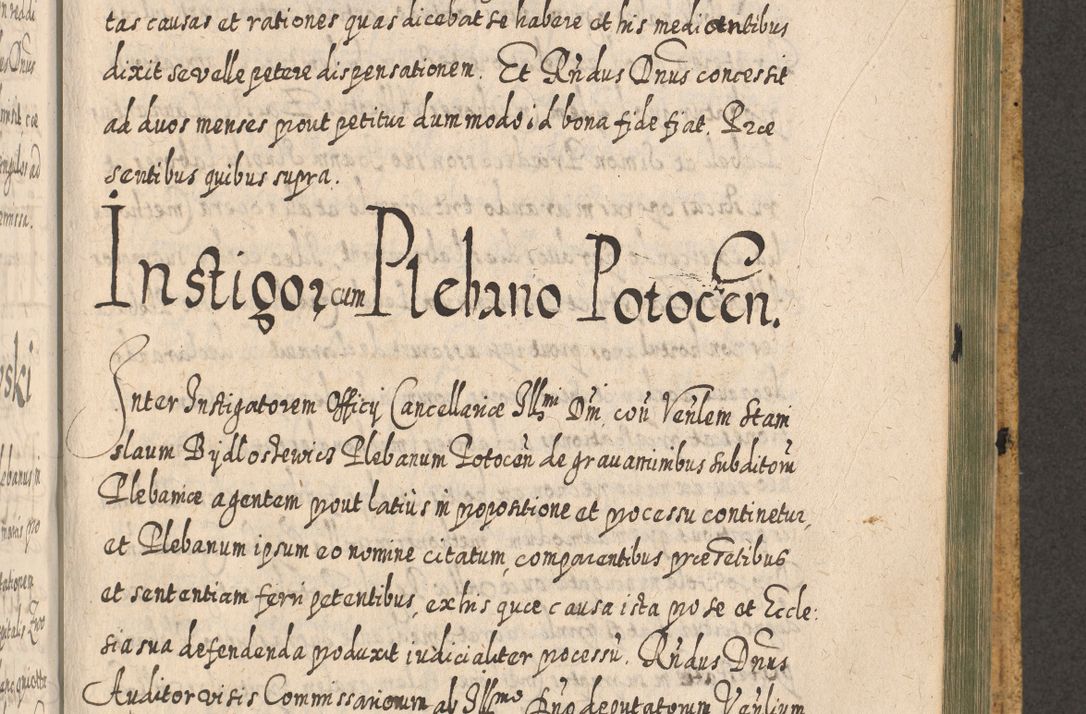 tas causas et rationes quas dicebat se habere et his medientibus
dixit se velle petere dispensationem. Et Rńdus Dnus concessit
ad duos menses prout petitur dummodo id bona fide fiat. Præ
sentibus quibus supra.
Instigor cum Plebano Potocen.
Inter Instigatorem Officij Cancellariæ Illmi Dni, con Venlem Stani
slaum Bydlostewics Plebanum Potocen de gravaminibus subditorū
Plebaniæ agentem prout latiùs in propositione et processu continetur,
et Plebanum ipsum eo nomine citatum comparentibus præ
et sententiam ferri petentibus, ex his quæ causa ista pro se et Eccle:
sia sua defendenda produxit iudicialiter processu. Rńdus Dnus
Auditor visis Commissariorum ab Illmo Dno deputatorum Venlium